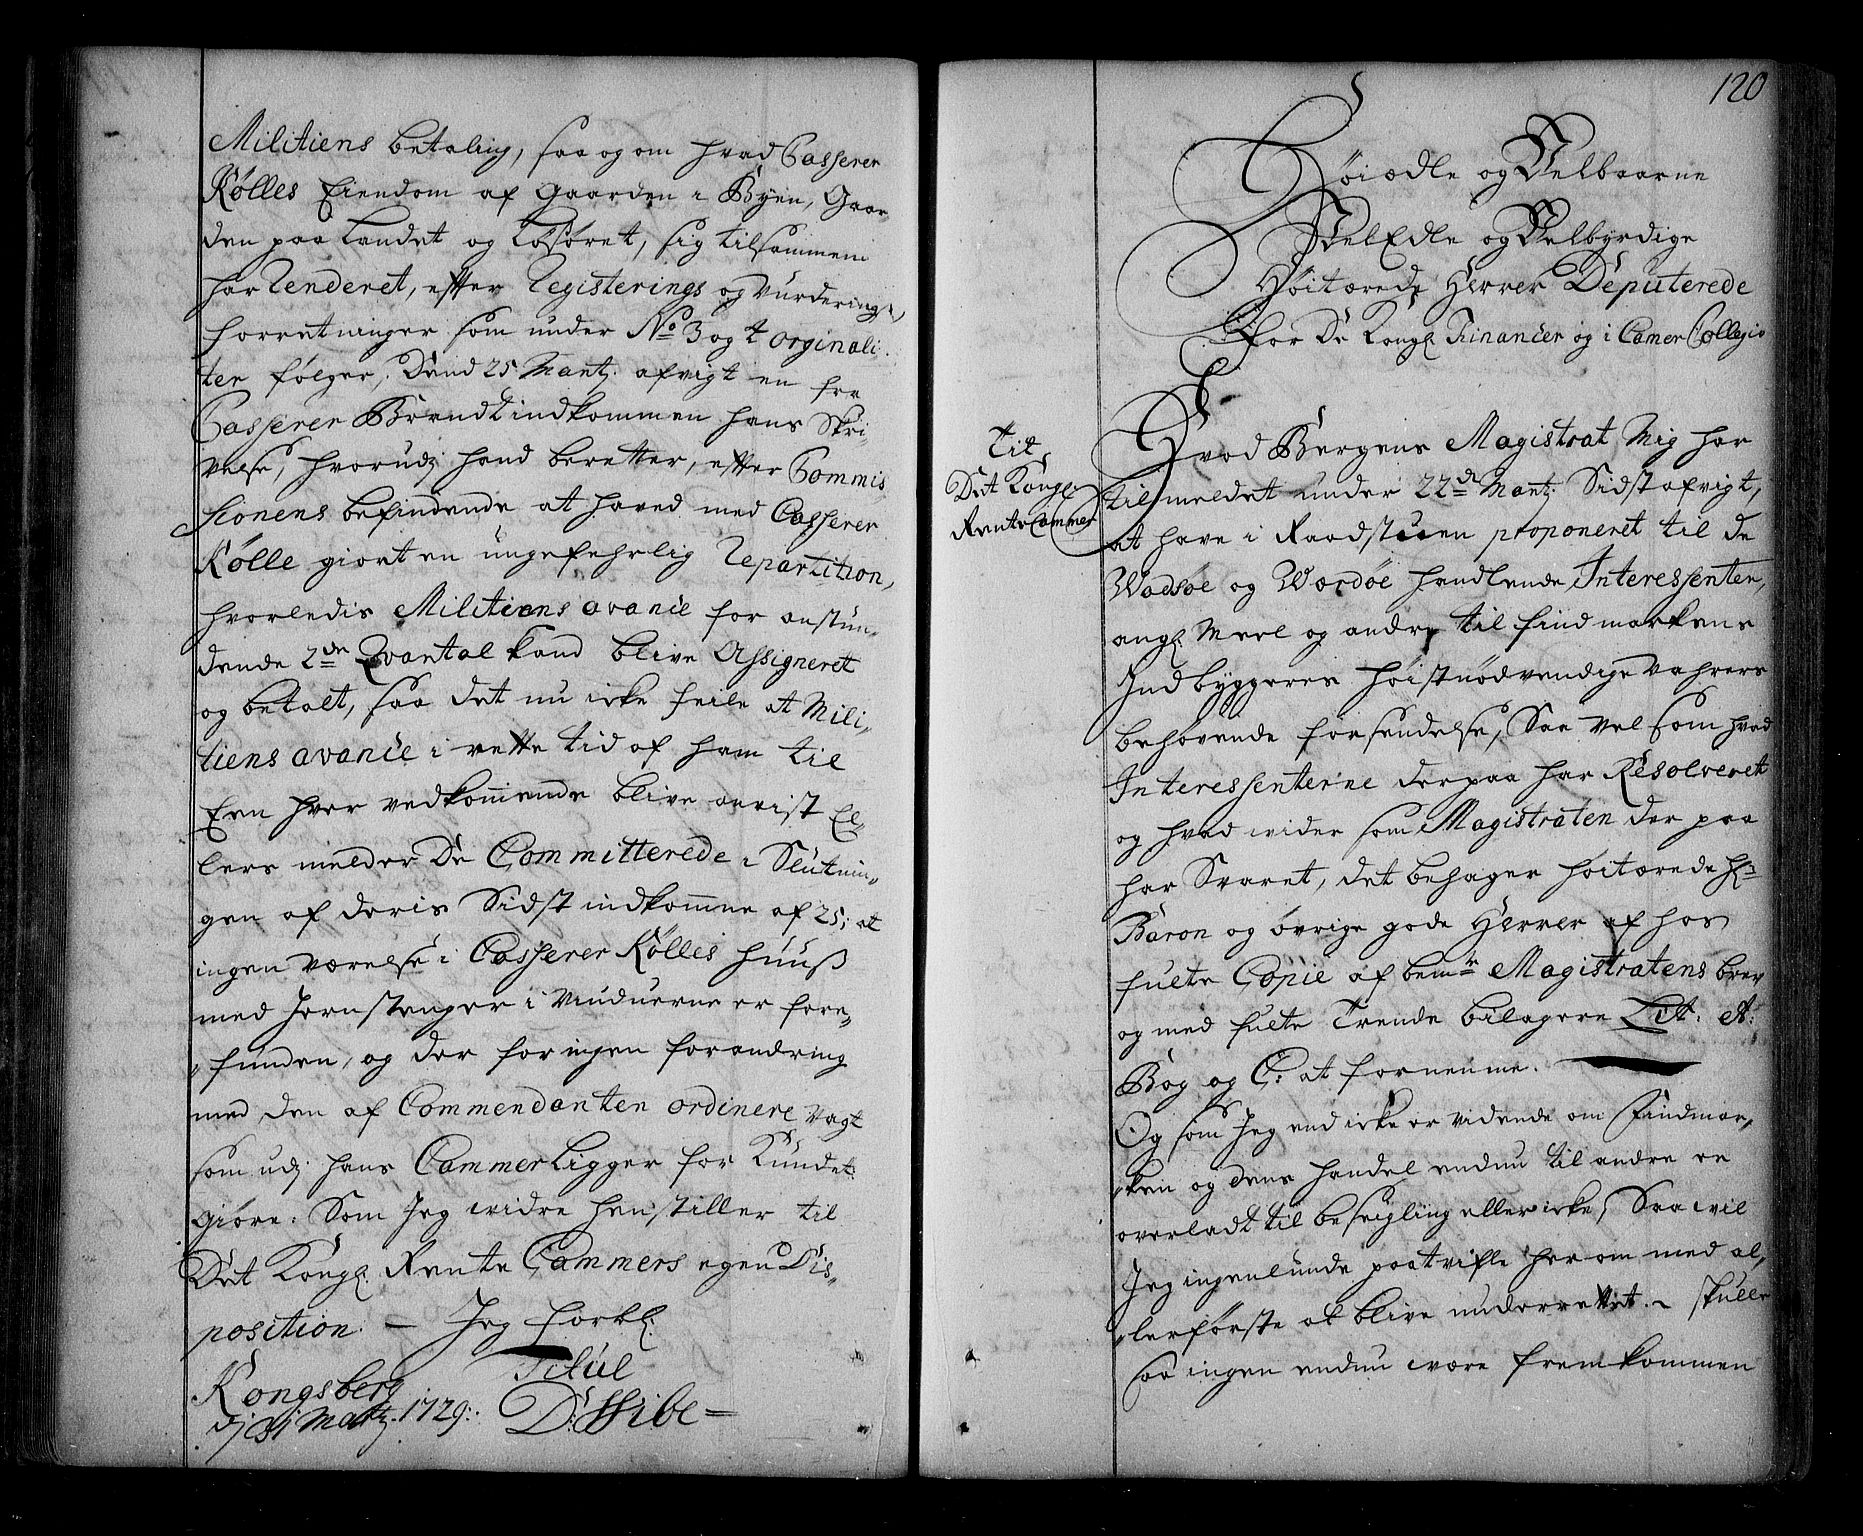 Militiens betaling, saa og om hvad Casserer
Kølles Eiendom af Gaarden i Byen, Gaar-
den paa Landet og Løsøret, sig tilsammen
har renderet, efter Registerings og Vurderings-
forretninger som under No 3 og 4 orginali-
ter følger. Dend 25 Martz. afvigt en fra
Casserer Brandt indkommen hans Skri-
velse, hvorudj hand beretter, efter Commis
sionens befindende at haved med Casserer
Kølle giort en ungefehrlig Repartition,
hvorledis Militiens avance for anstun-
dende 2de Qvartal kand blive Assigneret
og betalt, saa det nu icke feile at Mili-
tiens avance i rette tid af ham til
Een hver vedkommende blive anvist El-
lers melder De Committerede i Slutnin-
gen af deris Sidst indkomne af 25: at
ingen værelse i Casserer Kølles Huuß
med Jernstenger i Vinduerne er fore-
funden, og der for ingen forandring
med den af Commendanten ordinere Vagt
som udj hans Cammer Ligger for Kundet
giøre. Som Jeg widre henstiller til
Det Kongl. Rente Cammers egen Dis-
position. — Jeg forbl.
Titul
Kongsberg
dj 31 Martz. 1729. D: Wibe =
120
Høiædle og Velbaarne
VelEdle og Velbyrdige
Høitærede Herrer Deputerede
For De Kongl. Financer og i Camer Collegio
Til
Det Kongl
Rente Cammer
Hvad Bergens Magistrat Mig har
tilmeldet under 22de Martz. Sidst afvigt,
at have i Raadstuen proponeret til de
Wadsøe og Wardøe handlende Interessenter,
ang. Meel og andre til findmarkens
Indbyggeres høistnødvendige Vahrers
behøvende forsendelse, Saa vel som hvad
Interessenterne derpaa har Resolveret
og hvad wider som Magistraten der paa
har Svaret, det behager høitærede Hr
Baron og øvrige gode Herrer af hos
fulte Copie af bemte Magistratens brev
og med fulte Trende bilagere Lit. A:
B og C: at fornemme.
Og som Jeg end icke er vidende om Findmar-
ken og dens handel endnu til andre er
overladt til beseigling eller icke, Saa wil
Jeg ingenlunde paatvifle her om med al-
lerførste at blive underrettet. Skulle
saa ingen endnu være fremkommen